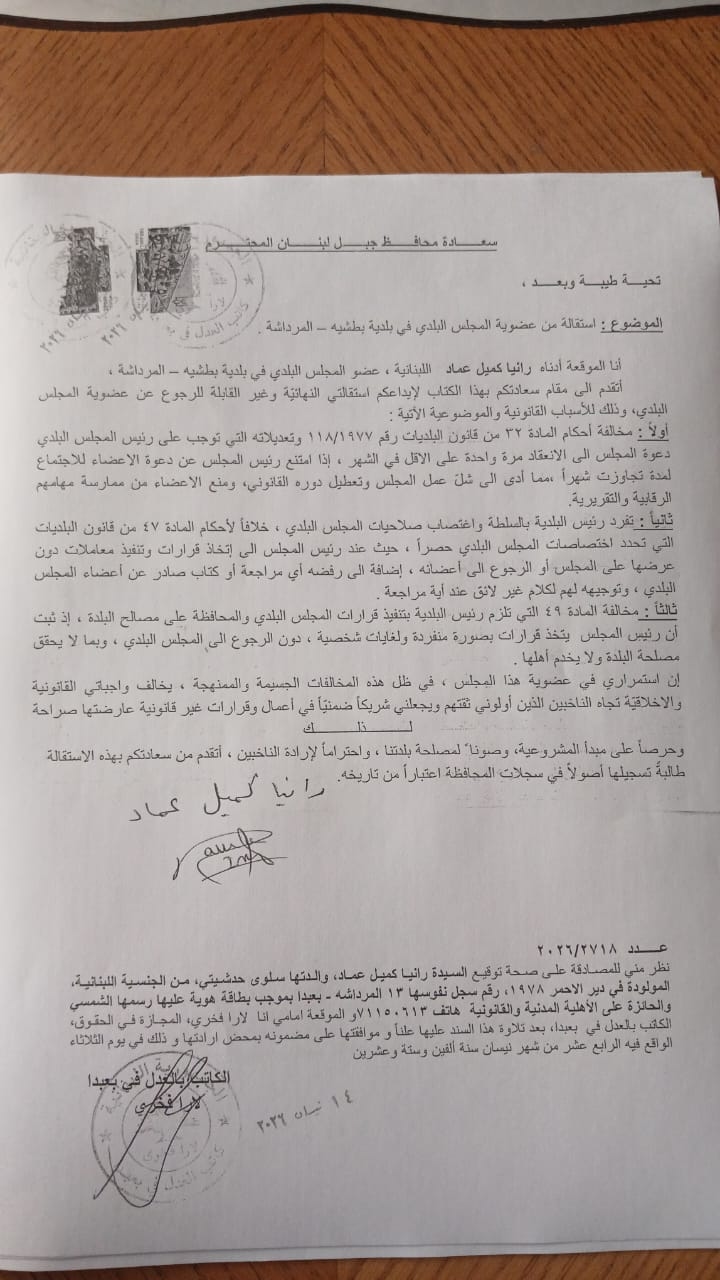 سعادة محافظ جبل لبنان المحترم
تحية طيبة وبعد ،
الموضوع : استقالة من عضوية المجلس البلدي في بلدية بطشيه – المرداشة .
أنا الموقعة أدناه رانيا كميل عماد اللبنانية ، عضو المجلس البلدي في بلدية بطشيه – المرداشة ،
أتقدم الى مقام سعادتكم بهذا الكتاب لإيداعكم استقالتي النهائية وغير القابلة للرجوع عن عضوية المجلس
البلدي، وذلك للأسباب القانونية والموضوعية الآتية :
أولاً : مخالفة أحكام المادة ٣٢ من قانون البلديات رقم ١١٨/١٩٧٧ وتعديلاته التي توجب على رئيس المجلس البلدي
دعوة المجلس الى الانعقاد مرة واحدة على الاقل في الشهر ، إذا امتنع رئيس المجلس عن دعوة الاعضاء للاجتماع
لمدة تجاوزت شهراً ،مما أدى الى شلّ عمل المجلس وتعطيل دوره القانوني، ومنع الاعضاء من ممارسة مهامهم
الرقابية والتقريرية.
ثانياً : تفرد رئيس البلدية بالسلطة واغتصاب صلاحيات المجلس البلدي ، خلافاً لأحكام المادة ٤٧ من قانون البلديات
التي تحدد اختصاصات المجلس البلدي حصراً ، حيث عند رئيس المجلس الى إتخاذ قرارات وتنفيذ معاملات دون
عرضها على المجلس أو الرجوع الى أعضائه ، إضافة الى رفضه أي مراجعة أو كتاب صادر عن أعضاء المجلس
البلدي ، وتوجيهه لهم لكلام غير لائق عند أية مراجعة .
ثالثاً : مخالفة المادة ٤٩ التي تلزم رئيس البلدية بتنفيذ قرارات المجلس البلدي والمحافظة على مصالح البلدة ، إذ ثبت
أن رئيس المجلس يتخذ قرارات بصورة منفردة ولغايات شخصية ، دون الرجوع الى المجلس البلدي ، وبما لا يحقق
مصلحة البلدة ولا يخدم أهلها .
إن استمراري في عضوية هذا المجلس ، في ظل هذه المخالفات الجسيمة والممنهجة ، يخالف واجباتي القانونية
والاخلاقيّة تجاه الناخبين الذين أولوني ثقتهم ويجعلني شريكاً ضمنيّاً في أعمال وقرارات غير قانونية عارضتها صراحة
لذلك
وحرصاً على مبدأ المشروعية، وصوناً لمصلحة بلدتنا ، واحتراماً لإرادة الناخبين ، أتقدم من سعادتكم بهذه الاستقالة
طالبةً تسجيلها أصولاً في سجلات المحافظة اعتباراً من تاريخه.
رانيا كميل عماد
عدد ٢٠٢٦/٢٧١٨
نظر مني للمصادقة على صحة توقيع السيدة رانيا كميل عماد، والدتها سلوى حدشيتي، من الجنسية اللبنانية،
المولودة في دير الاحمر ١٩٧٨، رقم سجل نفوسها ١٣ المرداشه - بعبدا بموجب بطاقة هوية عليها رسمها الشمسي
والحائزة على الأهلية المدنية والقانونية هاتف ٧١١٥٠٦١٣و الموقعة امامي انا لارا فخري، المجازة في الحقوق،
الكاتب بالعدل في بعبدا، بعد تلاوة هذا السند عليها علناً و موافقتها على مضمونه بمحض ارادتها و ذلك في يوم الثلاثاء
الواقع فيه الرابع عشر من شهر نيسان سنة ألفين وستة وعشرين
الكاتب بالعدل في بعبدا
لارا فخري
١٤ نيسان ٢٠٢٦